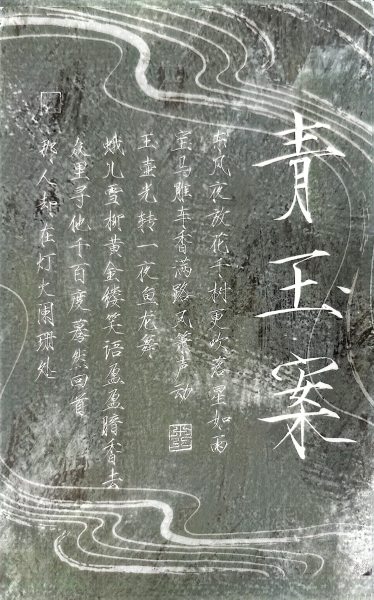 青玉案
东风夜放花千树更吹落星如雨
宝马雕车香满路凤箫声动
玉壶光转一夜鱼龙舞
蛾儿雪柳黄金缕笑语盈盈暗香去
众里寻他千百度蓦然回首
那人却在灯火阑珊处